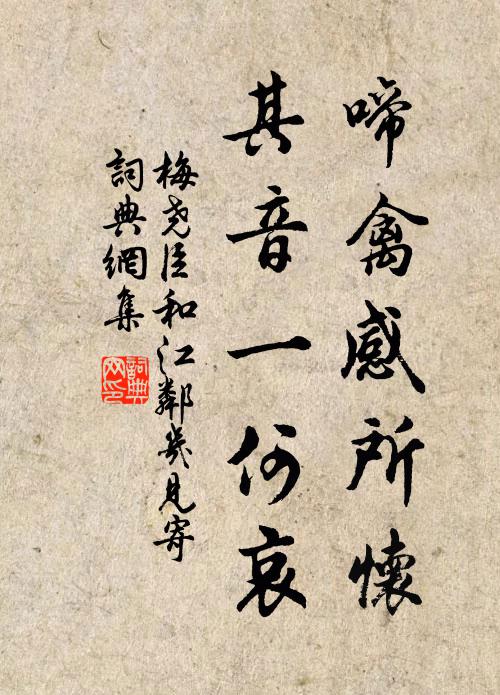 啼禽感所懷
其音一何哀
梅尧臣和江鄰幾見寄
詞典網集
詞典网印